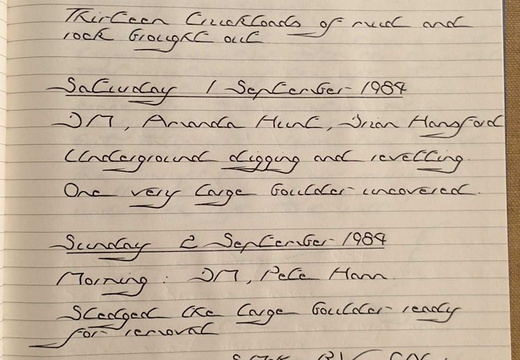 Thirteen truckloads of mud and
rock brought out
Saturday 1 September 1984
DM, Amanda Hunt, Brian Hansford
Underground digging and revelling.
One very large boulder uncovered.
Sunday 2 September 1984
Morning: DM, Pete Hann.
Sledged the large boulder ready
for removal